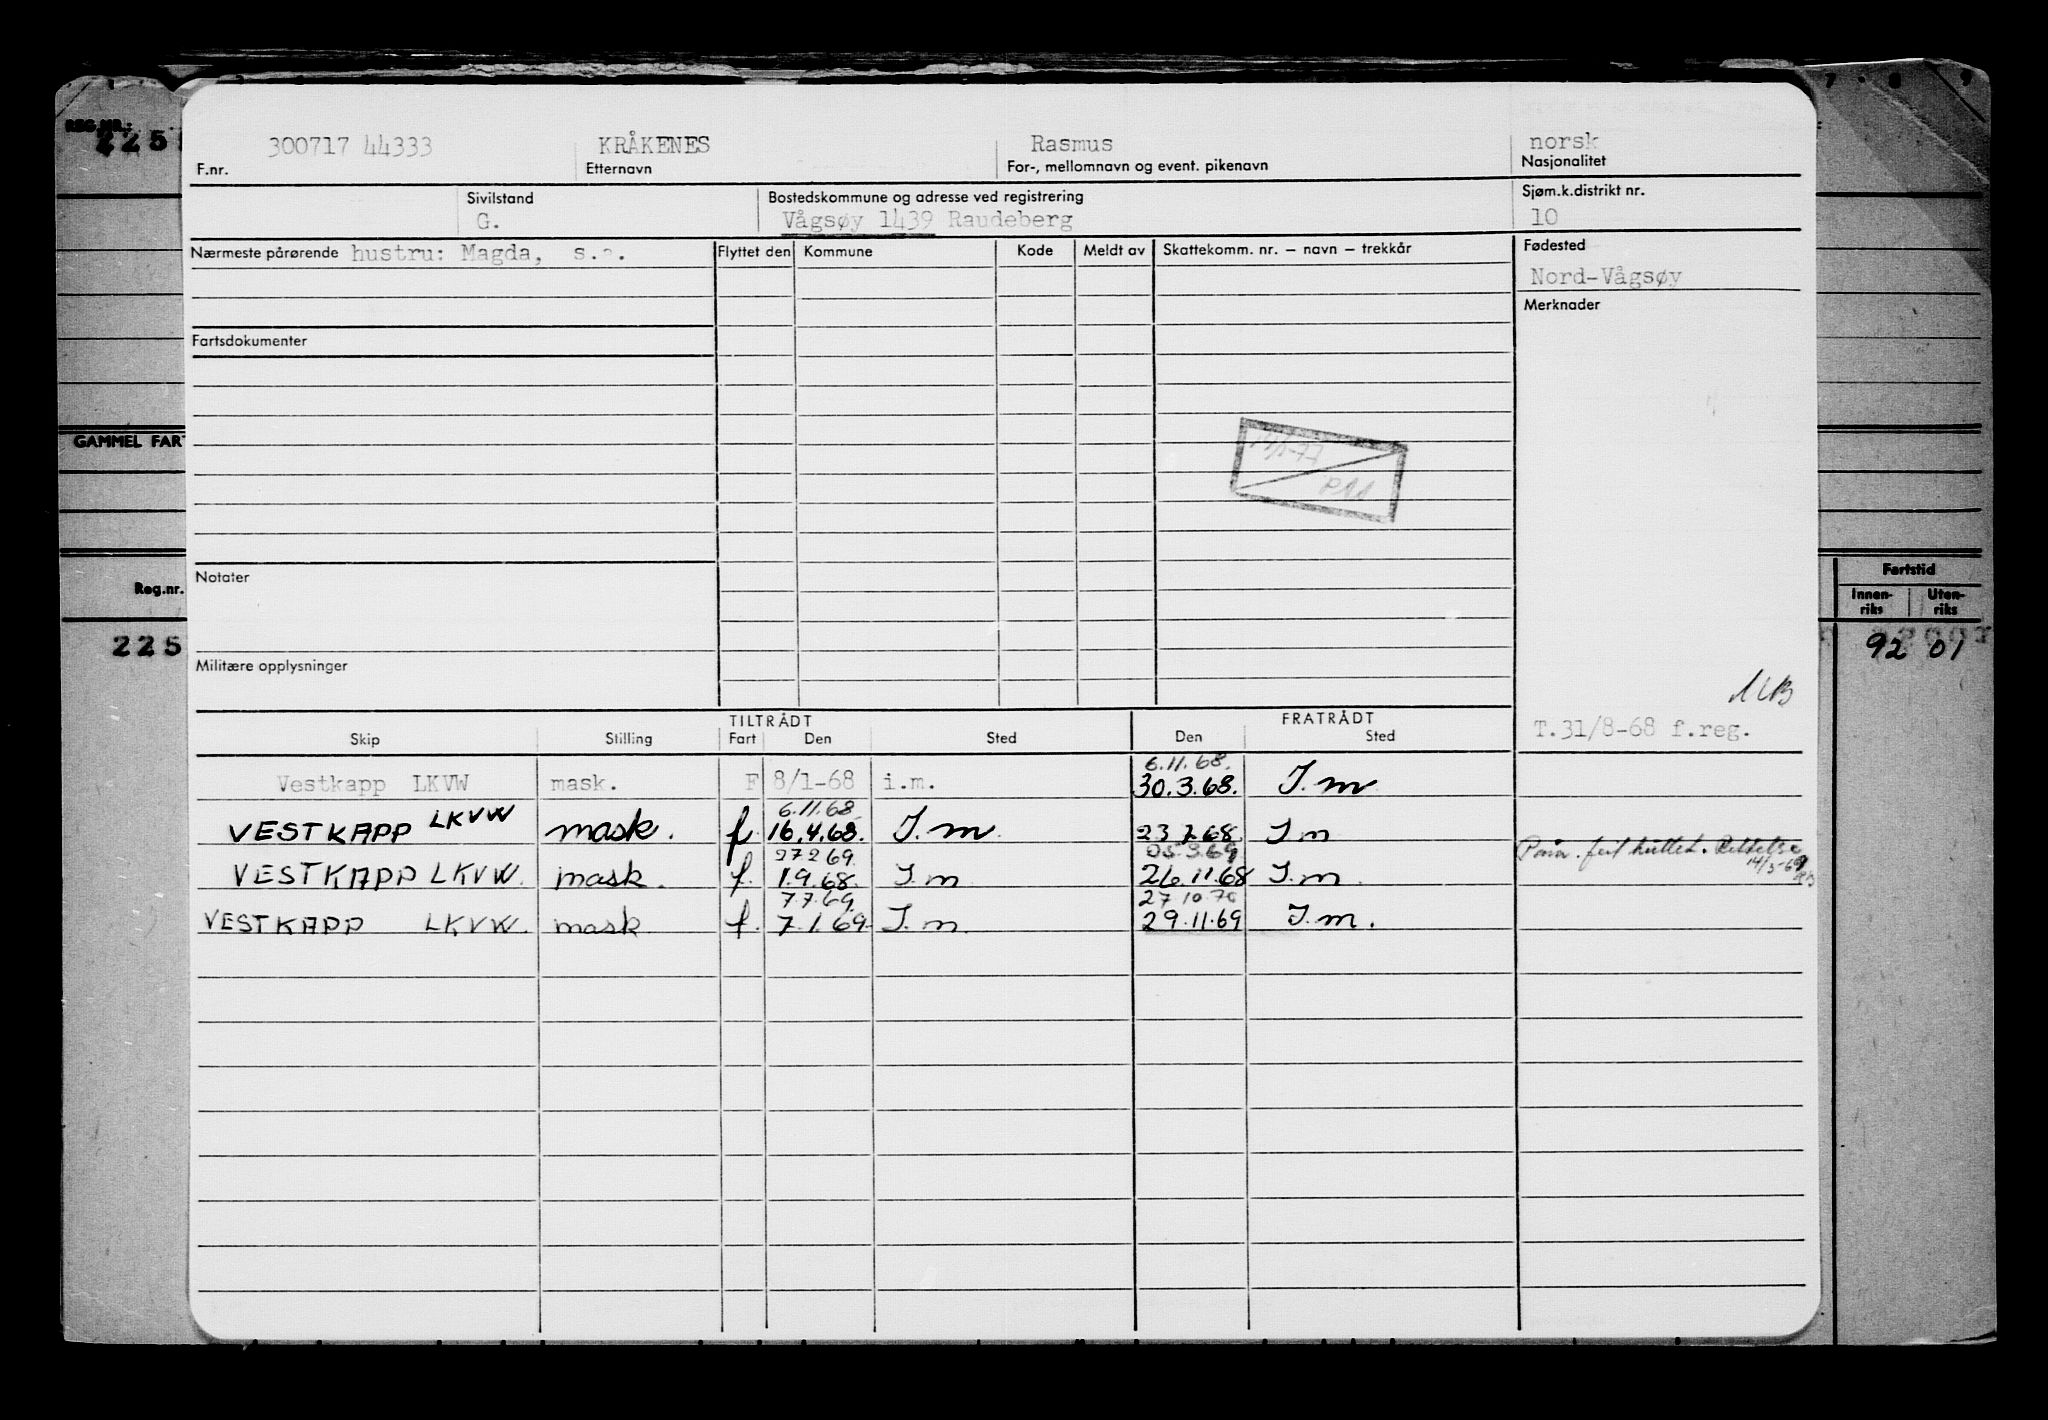 REG.NR.:
225
7 8 9
300717 44333 KRÅKENES Rasmus norsk
F.nr. Etternavn For-, mellomnavn og event. pikenavn Nasjonalitet
Sivilstand Bostedskommune og adresse ved registrering Sjøm.k.distrikt nr.
G. Vågsøy 1439 Raudeberg 10
Nærmeste pårørende hustru: Magda, s.a. Flyttet den Kommune Kode Meldt av Skattekomm. nr. – navn – trekkår Fødested
Nord-Vågsøy
Merknader
Fartsdokumenter
GAMMEL FAR
Notater
Reg.nr.
Fartstid
Innen-riks Uten-riks
225
92 01
Militære opplysninger
TILTRÅDT FRATRÅDT
T.31/8-68 f.reg.
Skip Stilling Fart Den Sted Den Sted
6.11.68.
Vestkapp LKVW mask. F 8/1-68 i.m. 30.3.68. I.m
6.11.68
VESTKAPP LKVW mask. f. 16.4.68. I.m. 23.7.68. I m
27 2 69. 05.3.69
VESTKAPP LKVW. mask. f. 1.9.68. I.m 26.11.68 I.m.
14/3-69
7.7.69. 27 10 70
VESTKAPP LKVW. mask f. 7.1.69. I.m. 29.11.69 I.m.